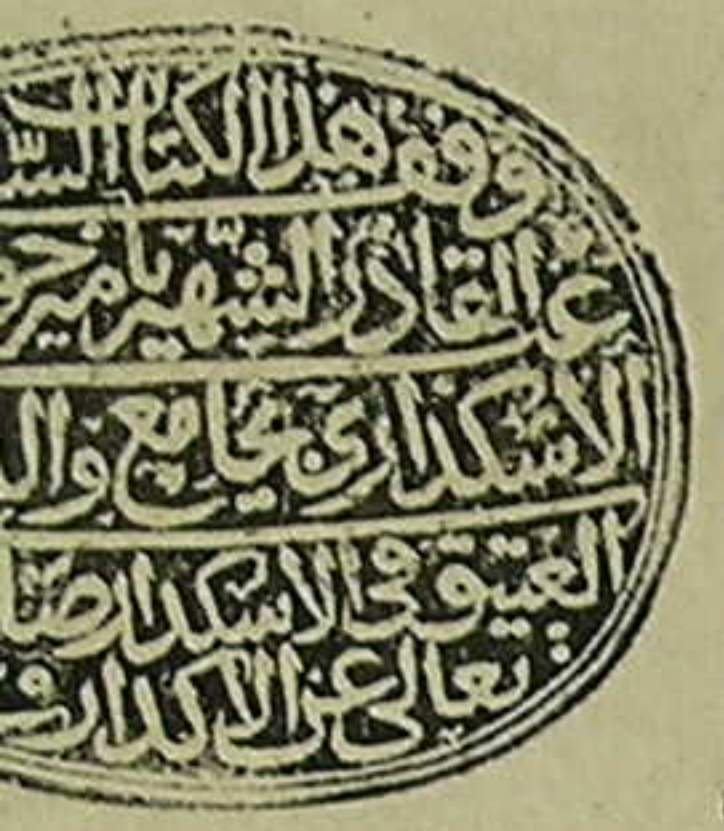 وقف هذا الكتاب السـ
عبد القادر الشهير بامير خو
الاسكداري بجامع والد
العتيق في الاسكدار صا
تعالى عن الاكدار و